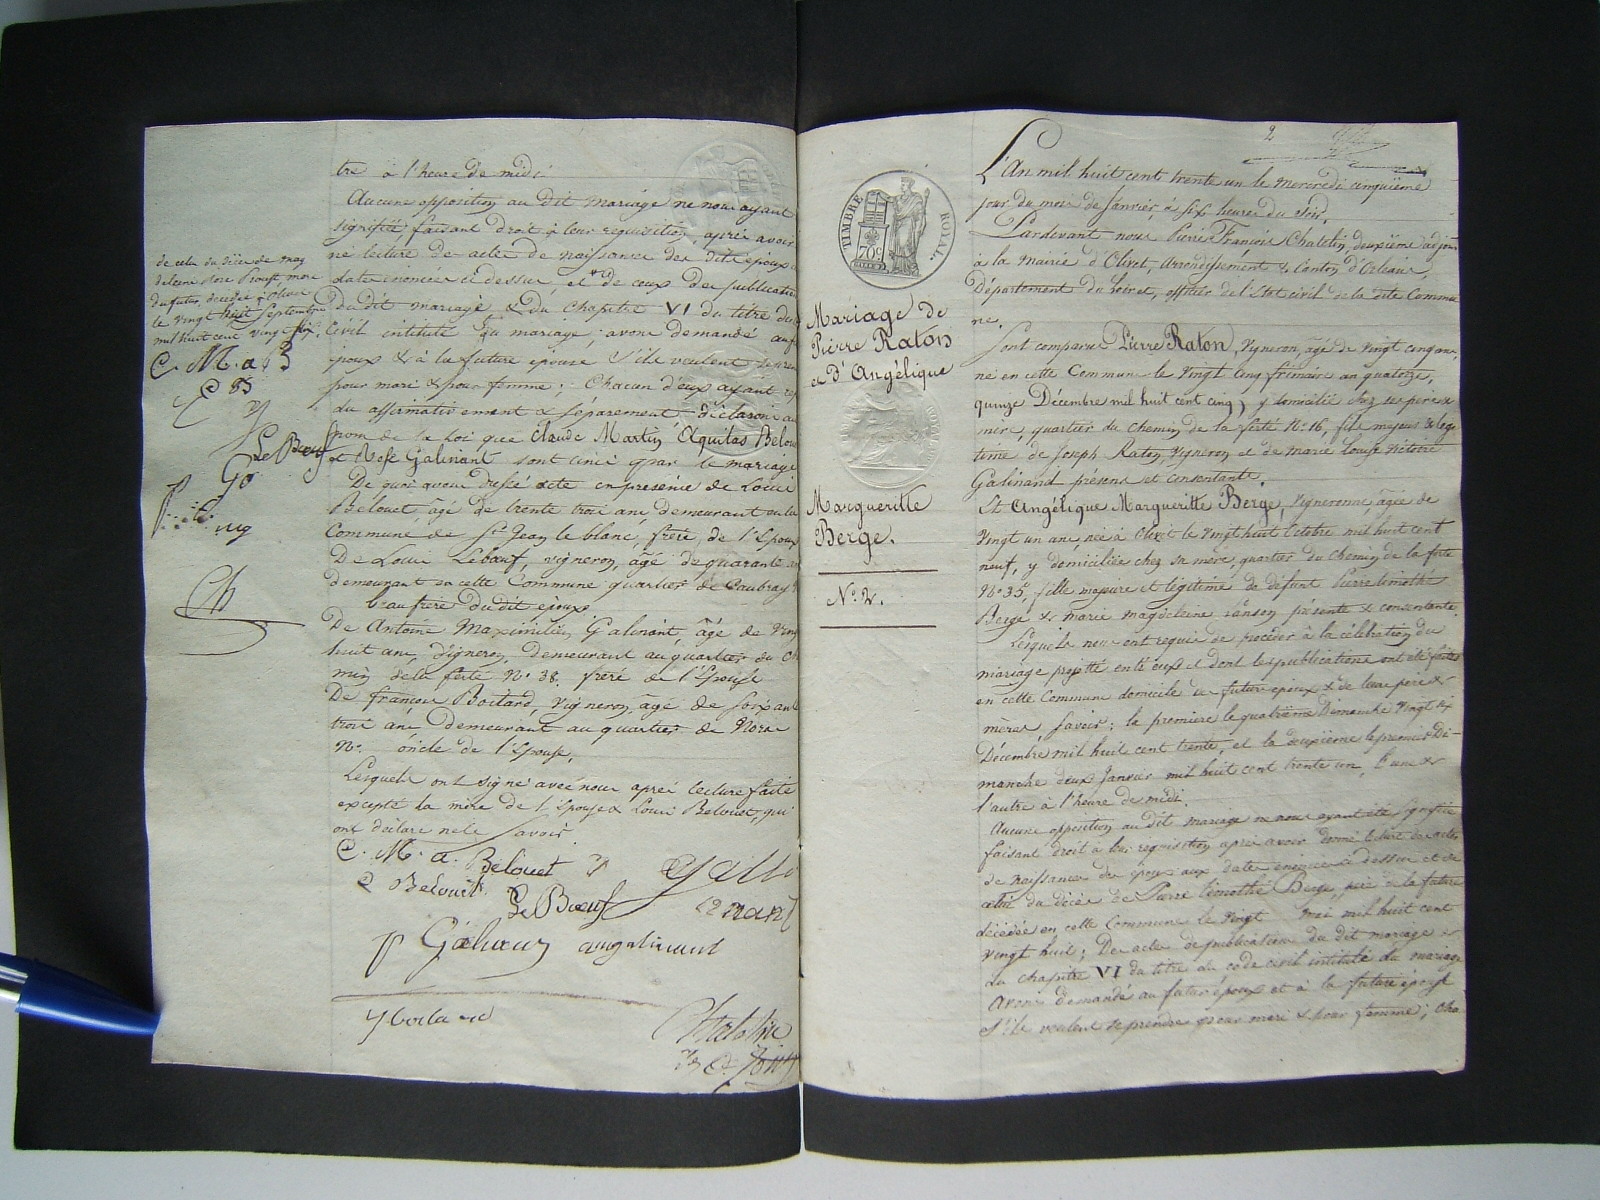 tre à l'heure de midi
Aucune opposition au dit mariage ne nous ayant
signifiée, faisant droit à leur requisition, après avoir
né lecture des actes de naissance des dits époux
dates énoncées ci dessus, et de ceux des publications
du dit mariage & du chapitre VI du titre du
civil intitulé du mariage; avons demandé au f
époux & à la future épouse s'ils veulent se pren
pour mari & pour femme; Chacun d'eux ayant rep
du affirmativement & séparement, déclarons au
nom de la loi que Claude Martin Aquilas Belou
et Rose Galinant sont unis par le mariage
De quoi avons dressé acte en présence de Louis
Belouet, âgé de trente trois ans, demeurant en la
Commune de St Jean le blanc, frère de l'Epoux
De Louis Lebœuf, vigneron, âgé de quarante
demeurant en cette Commune quartier de Caubray
beaufrere du dit époux
De Antoine Maximilien Galinant, âgé de Ving
huit ans, vigneron, demeurant au quartier du Ch
min de la ferté No 38. frère de l'Epouse
De François Boitard, vigneron, âgé de soixante
trois ans, demeurant au quartier de
No. oncle de l'Epouse,
Lesquels ont signé avec nous après lecture faite
excepté la mère de l'Epouse & Louis Belouet, qui
ont déclaré ne le savoir
C. M. a. Belouet
Belouet
Le Bœuf
de celui du décès de
mère
du futur, décédée à Olivet
le vingt huit Septembre
mil huit cent vingt six.
C. M. a B
Le Bœuf
2
TIMBRE ROYAL
70c
Mariage de
Pierre Raton
et d'Angélique
Margueritte
Berge.
No. 2.
L'An mil huit cent trente un le mercredi cinquième
jour du mois de Janvier, à six heures du soir,
Pardevant nous Pierre François Chatelin, deuxième adjoin
à la Mairie d'Olivet, Arrondissement & Canton d'Orléans,
Département du Loiret, officier de l'Etat civil de la dite Commu
ne.
Sont comparus Pierre Raton, vigneron, âgé de vingt cinq ans,
né en cette Commune le vingt cinq frimaire an quatorze,
quinze Décembre mil huit cent cinq, y domicilié chez ses père &
mère, quartier du chemin de la ferté No. 16, fils majeur & légi
time de Joseph Raton, vigneron et de Marie Louise Victoire
Galinand présens et consentants.
Et Angélique Margueritte Berge, vigneronne, âgée de
vingt un ans, née à Olivet le vingt huit octobre mil huit cent
neuf, y domiciliée chez sa mère, quartier du chemin de la ferté
No. 35, fille majeure et légitime de défunt Pierre timothé
Berge & marie magdeleine Sanson présente & consentante.
Lesquels nous ont requis de procéder à la célébration du
mariage projetté entr'eux et dont les publications ont été faites
en cette Commune domicile des futurs époux & de leurs père &
mères, savoir: la première le quatrième Dimanche vingt six
Décembre mil huit cent trente, et la deuxième le premier Di-
manche deux Janvier mil huit cent trente un, l'une &
l'autre à l'heure de midi.
Aucune opposition au dit mariage ne nous ayant été signifiée
faisant droit à leur requisition après avoir donné lecture des actes
de naissance des époux aux dates énoncées ci dessus et de
celui du décès de Pierre timothé Berge, père de la future
décédé en cette Commune le vingt mai mil huit cent
vingt huit; Des actes de publications du dit mariage &
du chapitre VI du titre du code civil intitulé du mariage
Avons demandé au futur époux et à la future épouse
s'ils veulent se prendre pour mari & pour femme; cha